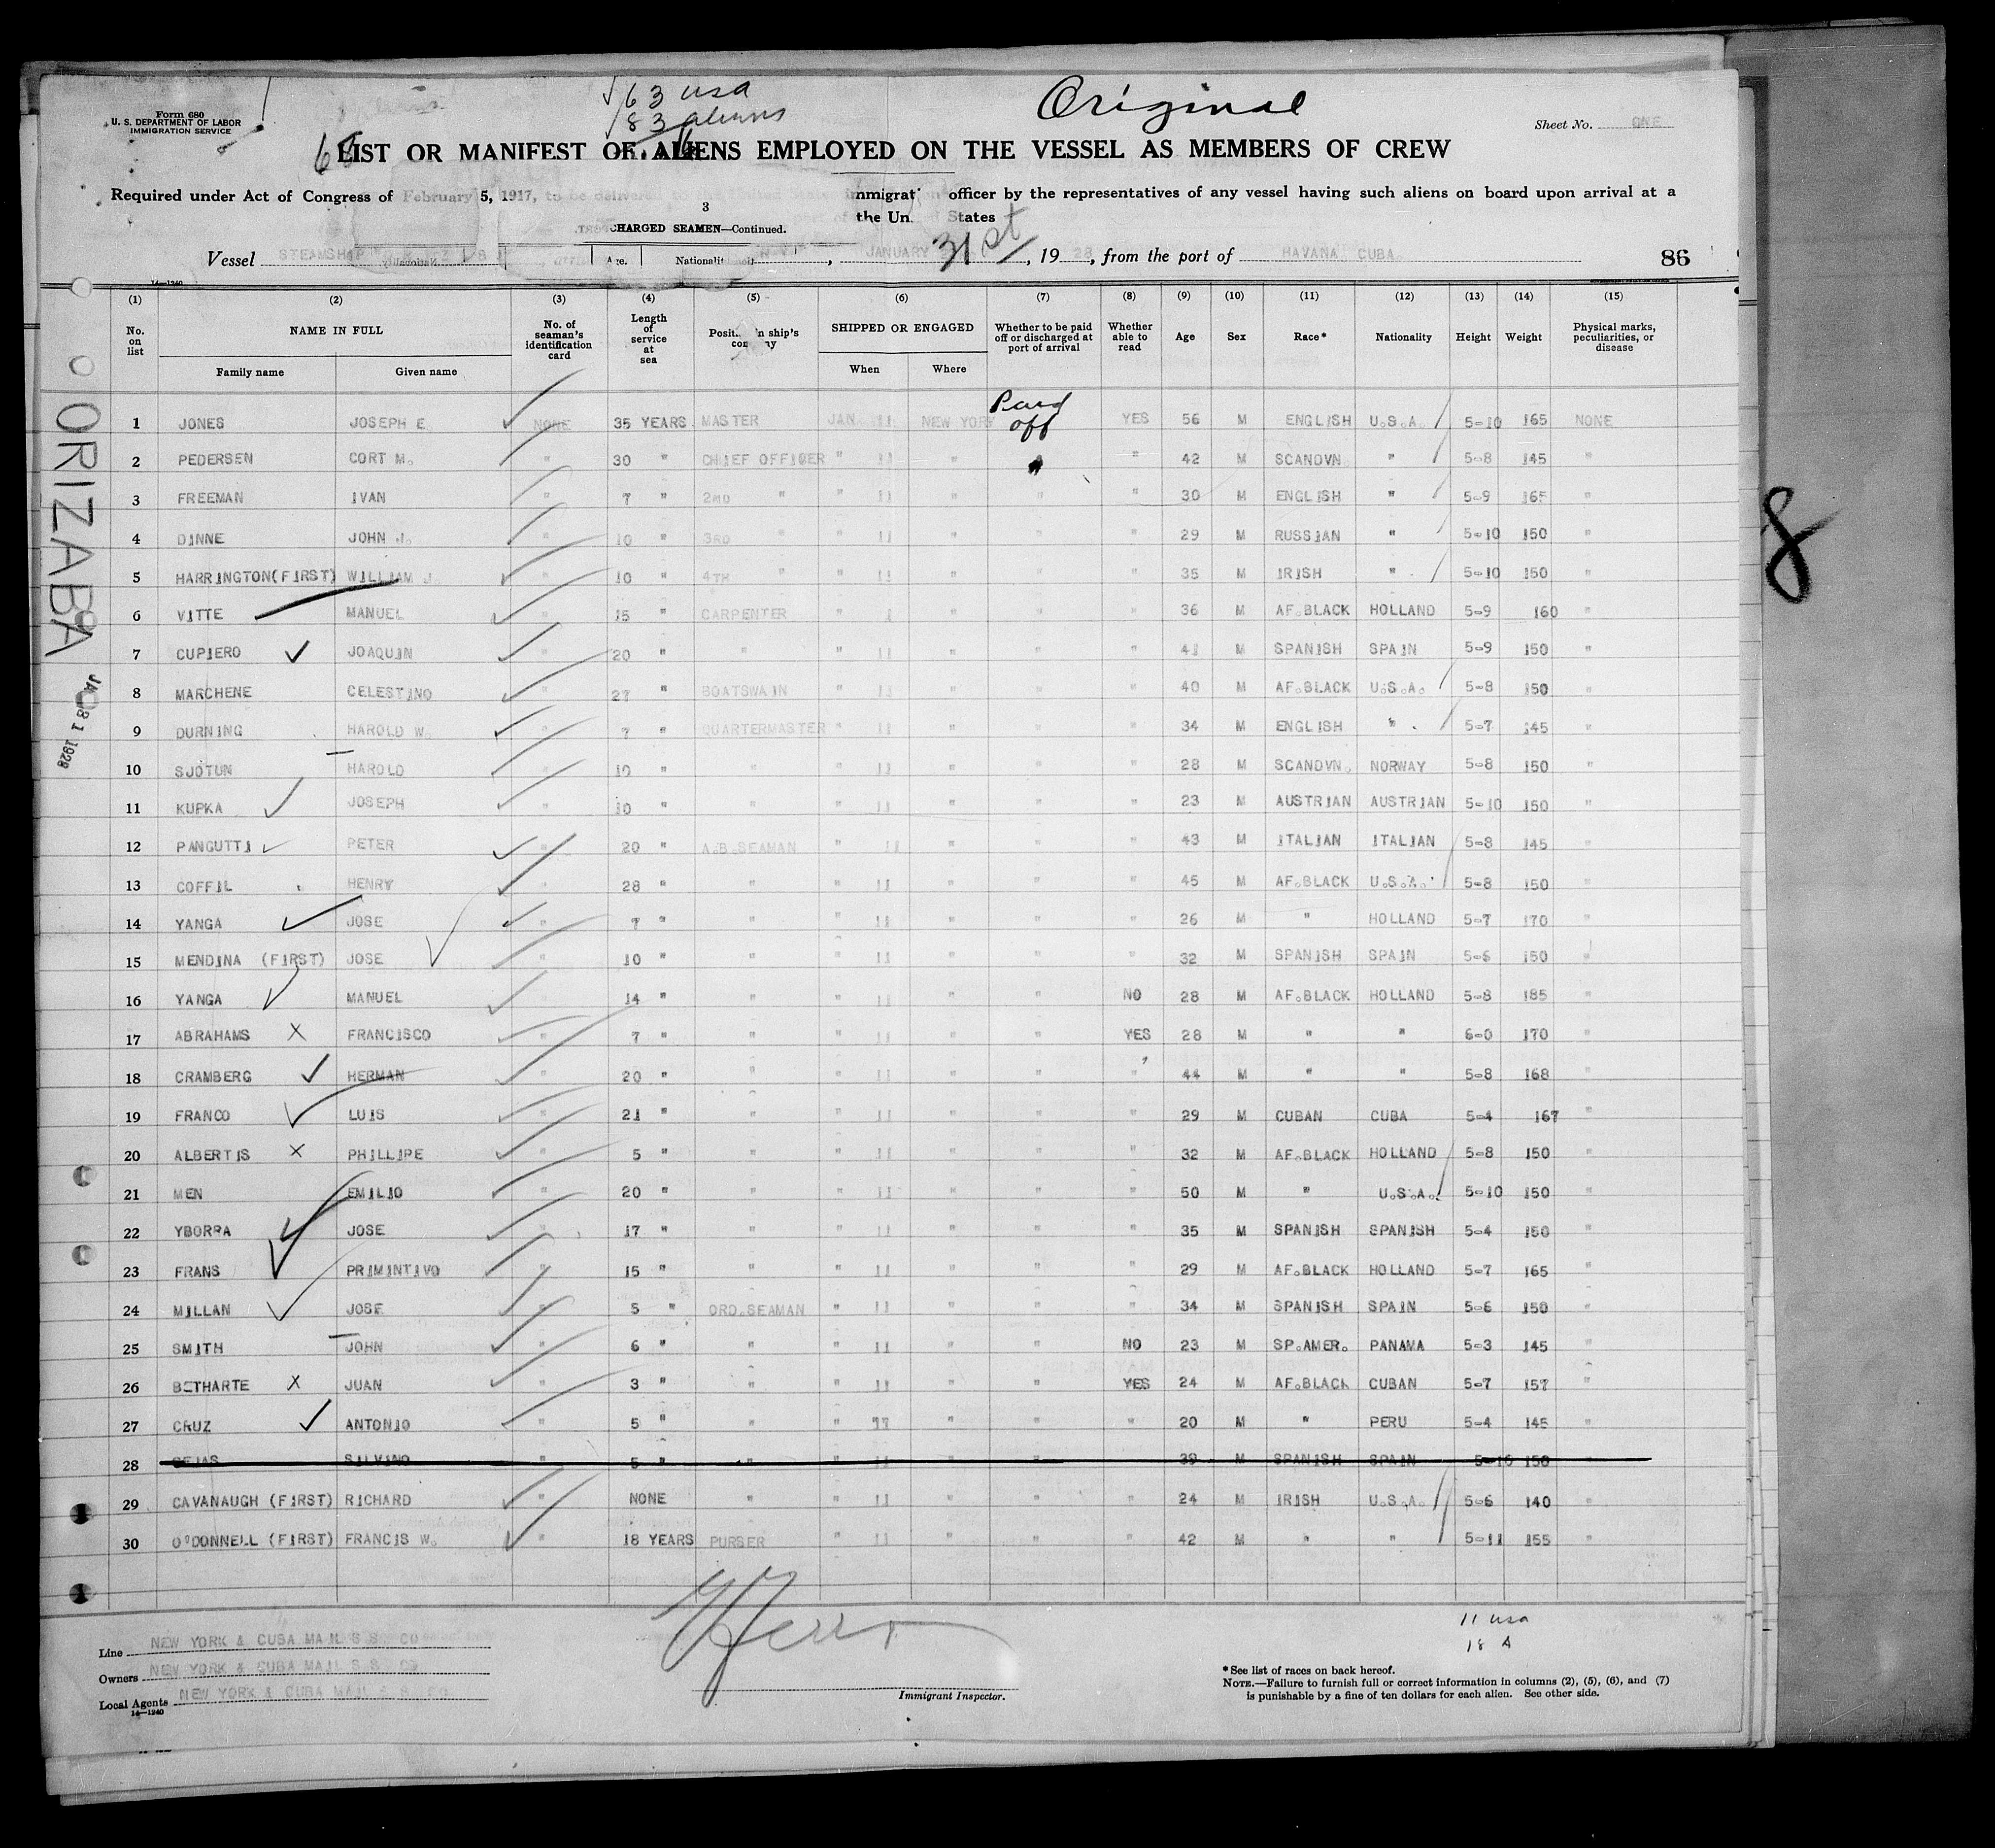 Form 680
U. S. DEPARTMENT OF LABOR
IMMIGRATION SERVICE
63 usa
83 aliens
Original
Sheet No. ONE
LIST OR MANIFEST OF ALIENS EMPLOYED ON THE VESSEL AS MEMBERS OF CREW
Required under Act of Congress of February 5, 1917, to be delivered immigrat officer by the representatives of any vessel having such aliens on board upon arrival at a
3
the Un States
CHARGED SEAMEN—Continued.
Vessel STEAMSHIP Age. Nationalit JANUARY 31st, 1928, from the port of HAVANA CUBA 86
14—1240
(1) (2) (3) (4) (5) (6) (7) (8) (9) (10) (11) (12) (13) (14) (15)
No. on list NAME IN FULL No. of seaman's identification card Length of service at sea Positi n ship's SHIPPED OR ENGAGED Whether to be paid off or discharged at port of arrival Whether able to read Age Sex Race* Nationality Height Weight Physical marks, peculiarities, or disease
Family name Given name When Where
1 JONES JOSEPH E. NONE 35 YEARS MASTER JAN. 11 NEW YORK Paid off YES 56 M ENGLISH U.S.A. 5-10 165 NONE
2 PEDERSEN CORT M. " 30 " CHIEF OFFICER " 11 " " 42 M SCANDVN " 5-8 145 "
3 FREEMAN IVAN " 7 " 2ND " " 11 " " " 30 M ENGLISH " 5-9 165 "
4 DINNE JOHN J. " 10 " 3RD " " 11 " " " 29 M RUSSIAN " 5-10 150 "
5 HARRINGTON(FIRST) WILLIAM J. " 10 " 4TH " " 11 " " " 35 M IRISH " 5-10 150 "
6 VITTE MANUEL " 15 " CARPENTER " 1 " " " 36 M AF.BLACK HOLLAND 5-9 160 "
7 CUPIERO JOAQUIN " 20 " " " 11 " " " 41 M SPANISH SPAIN 5-9 150 "
8 MARCHENE CELESTINO " 27 " BOATSWAIN " 11 " " " 40 M AF.BLACK U.S.A. 5-8 150 "
9 DURNING HAROLD W. " 7 " QUARTERMASTER " 11 " " " 34 M ENGLISH " 5-7 145 "
10 SJOTUN HAROLD " 10 " " " 11 " " " 28 M SCANDVN. NORWAY 5-8 150 "
11 KUPKA JOSEPH " 10 " " 11 " " " 23 M AUSTRIAN AUSTRIAN 5-10 150 "
12 PANGUTTI PETER " 20 " A.B.SEAMAN " 11 " " " 43 M ITALIAN ITALIAN 5-8 145 "
13 COFFIL HENRY " 28 " " " 11 " " " 45 M AF.BLACK U.S.A. 5-8 150 "
14 YANGA JOSE " 7 " " " 11 " " " 26 M " HOLLAND 5-7 170 "
15 MENDINA (FIRST) JOSE " 10 " " " 11 " " " 32 M SPANISH SPAIN 5-6 150 "
16 YANGA MANUEL " 14 " " " 11 " " NO 28 M AF.BLACK HOLLAND 5-8 185 "
17 ABRAHAMS X FRANCISCO " 7 " " " 11 " " YES 28 M " " 6-0 170 "
18 CRAMBERG HERMAN " 20 " " " 11 " " " 44 M " " 5-8 168 "
19 FRANCO LUIS " 21 " " " 11 " " " 29 M CUBAN CUBA 5-4 167 "
20 ALBERTIS X PHILLIPE " 5 " " " 11 " " " 32 M AF.BLACK HOLLAND 5-8 150 "
21 MEN EMILIO " 20 " " " 11 " " " 50 M " U.S.A. 5-10 150 "
22 YBORRA JOSE " 17 " " " 11 " " " 35 M SPANISH SPANISH 5-4 150 "
23 FRANS PRIMINTIVO " 15 " " " 11 " " " 29 M AF.BLACK HOLLAND 5-7 165 "
24 MILLAN JOSE " 5 " ORD.SEAMAN " 11 " " " 34 M SPANISH SPAIN 5-6 150 "
25 SMITH JOHN " 6 " " " 11 " " NO 23 M SP.AMER. PANAMA 5-3 145 "
26 BETHARTE X JUAN " 3 " " " 11 " " YES 24 M AF.BLACK CUBAN 5-7 157 "
27 CRUZ ANTONIO " 5 " " " 11 " " " 20 M " PERU 5-4 145 "
28 SEJAS SILVINO " 5 " " " 11 " " " 39 M SPANISH SPAIN 5-10 150
29 CAVANAUGH (FIRST) RICHARD " NONE " " 11 " " " 24 M IRISH U.S.A. 5-6 140 "
30 O'DONNELL (FIRST) FRANCIS W. " 18 YEARS PURSER " 11 " " " 42 M " " 5-11 155 "
ORIZABA
JAN 31 1928
8
11 usa
18 A
Line NEW YORK & CUBA MAIL S.S. CO
Owners NEW YORK & CUBA MAIL S.S. CO
Local Agents NEW YORK & CUBA MAIL S.S. CO
14—1240
Immigrant Inspector.
*See list of races on back hereof.
NOTE.—Failure to furnish full or correct information in columns (2), (5), (6), and (7)
is punishable by a fine of ten dollars for each alien. See other side.